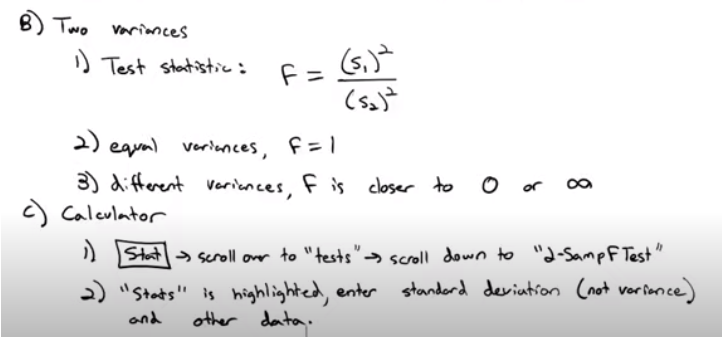 B) Two variances
1) Test statistic: F = (s₁)² / (s₂)²
2) equal variances, F = 1
3) different variances, F is closer to 0 or ∞
C) Calculator
1) Stat → scroll over to "tests" → scroll down to "2-SampFTest"
2) "Stats" is highlighted, enter standard deviation (not variance)
and other data.